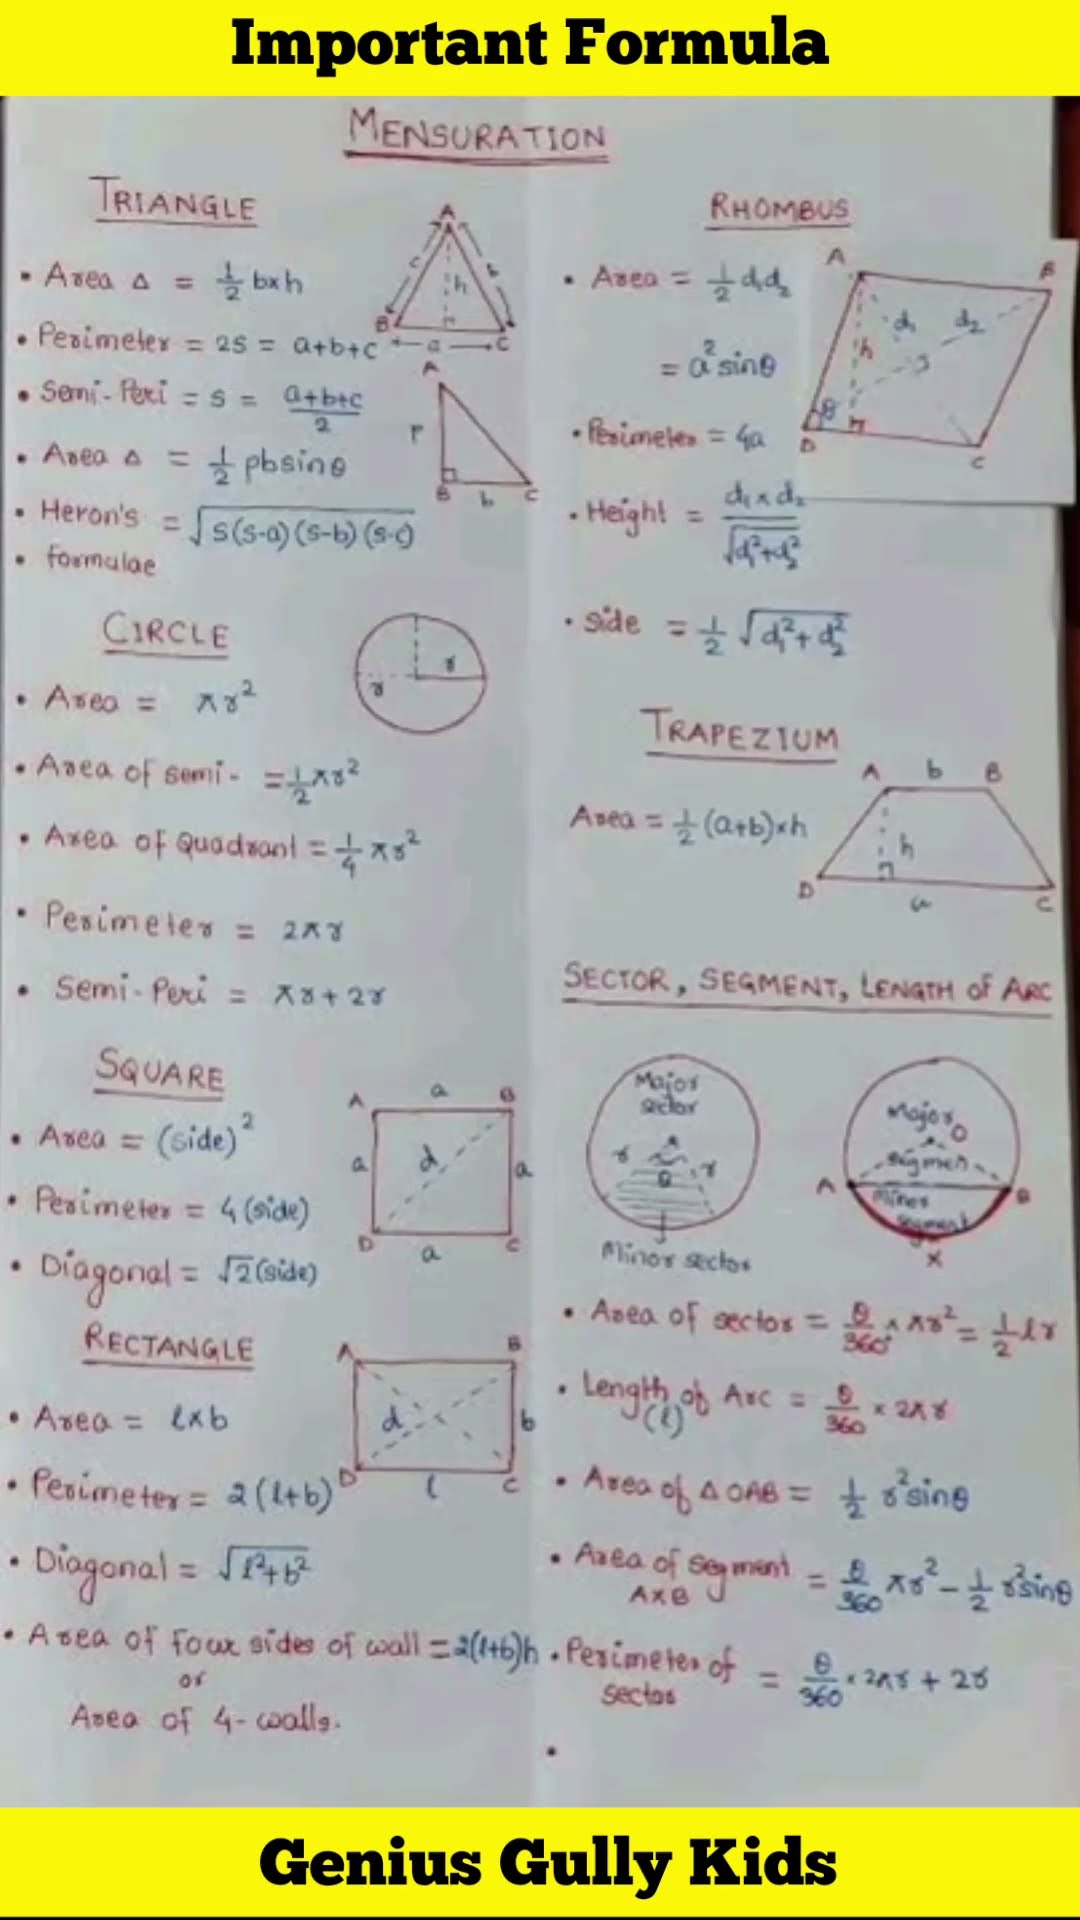 Important Formula
MENSURATION
TRIANGLE
• Area Δ = 1/2 b×h
• Perimeter = 2S = a+b+c
• Semi-Peri = s = a+b+c/2
• Area Δ = 1/2 pbsinθ
• Heron's = √s(s-a)(s-b)(s-c)
• formulae
A
c
b
h
B
a
C
A
P
B
b
C
CIRCLE
• Area = πr²
• Area of semi- = 1/2 πr²
• Area of Quadrant = 1/4 πr²
• Perimeter = 2πr
• Semi-Peri = πr+2r
r
r
SQUARE
• Area = (side)²
• Perimeter = 4(side)
• Diagonal = √2(side)
A
a
B
a
d
a
D
a
C
RECTANGLE
• Area = l×b
• Perimeter = 2(l+b)
• Diagonal = √l²+b²
• Area of four sides of wall = 2(l+b)h
or
Area of 4-walls.
A
B
d
b
D
l
C
RHOMBUS
• Area = 1/2 d₁d₂
= a²sinθ
• Perimeter = 4a
• Height = d₁×d₂/√d₁²+d₂²
• side = 1/2 √d₁²+d₂²
A
B
d₁
d₂
h
θ
D
C
TRAPEZIUM
Area = 1/2 (a+b)×h
A
b
B
h
D
a
C
SECTOR, SEGMENT, LENGTH of ARC
Major
sector
r
θ
r
Minor sector
Major
O
segmen
A
B
Minor
segment
X
• Area of sector = θ/360 × πr² = 1/2 lr
• Length of Arc = θ/360 × 2πr
(l)
• Area of Δ OAB = 1/2 r²sinθ
• Area of segment = θ/360 πr² - 1/2 r²sinθ
AXB
• Perimeter of = θ/360 × 2πr + 2r
sector
Genius Gully Kids